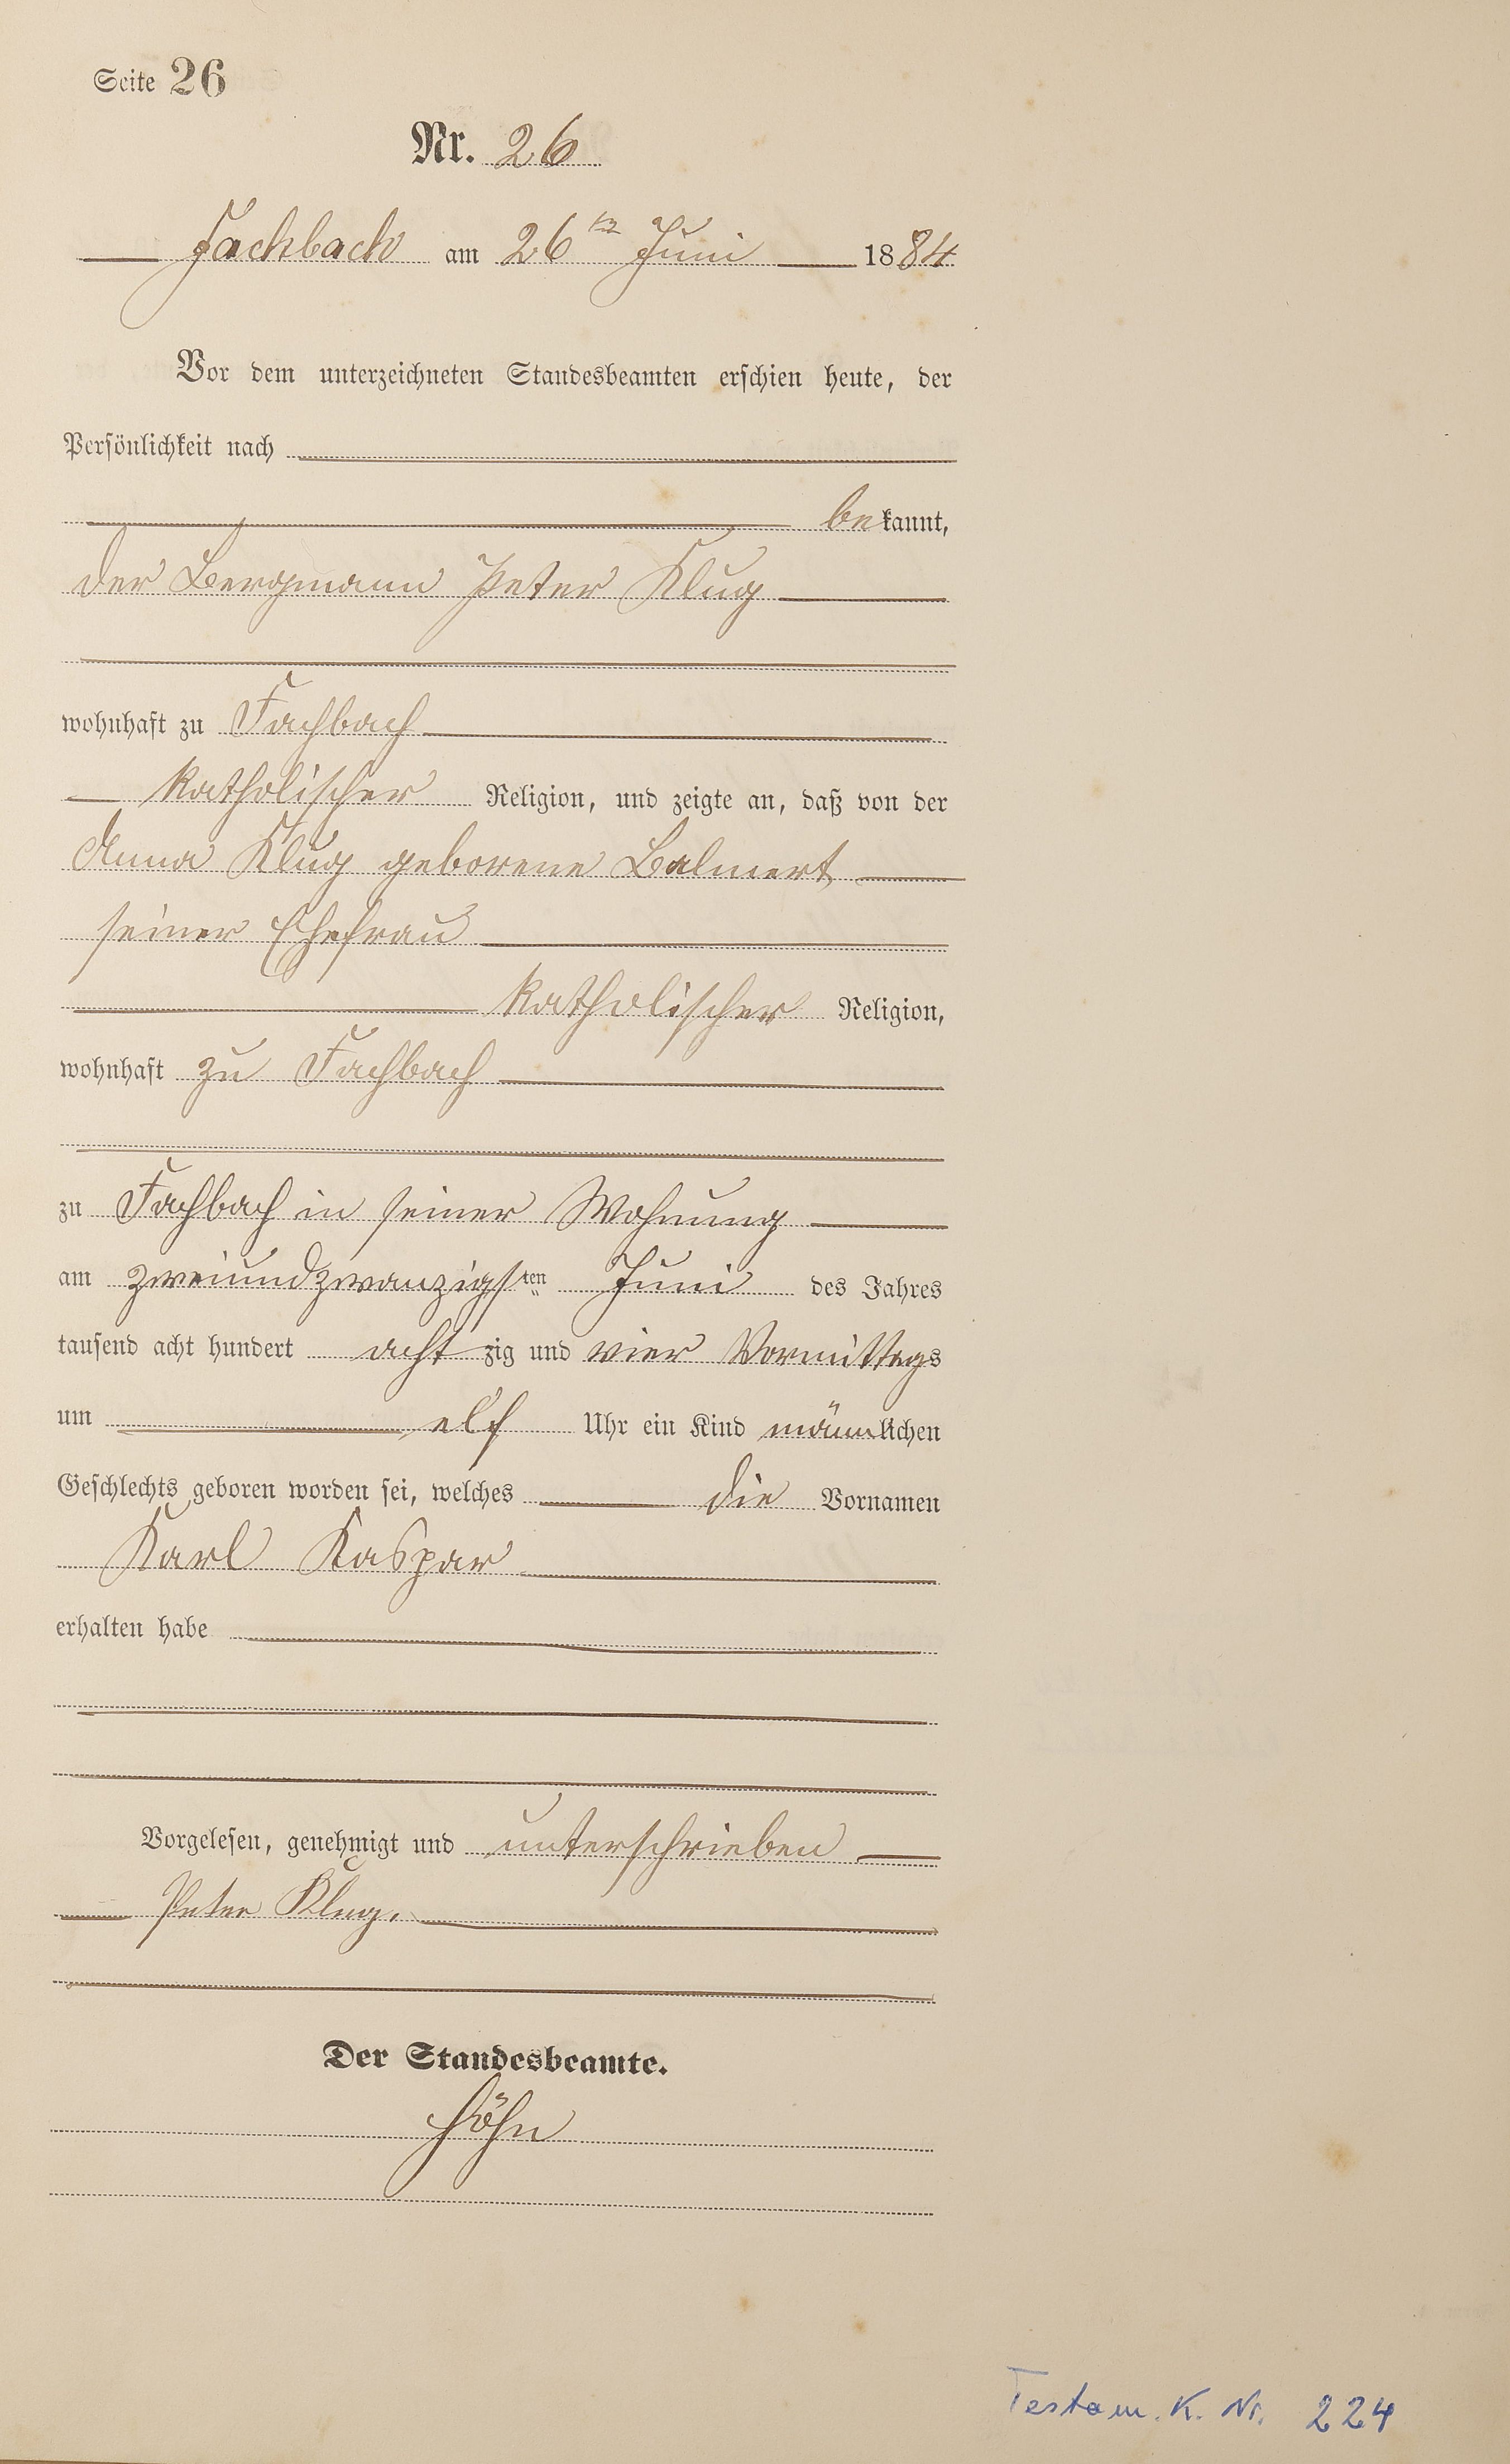 Seite 26
Nr. 26
Fachbach am 26ten Juni 1884
Vor dem unterzeichneten Standesbeamten erschien heute, der
Persönlichkeit nach
bekannt,
der Bergmann Peter Klug
wohnhaft zu Fachbach
katholischer Religion, und zeigte an, daß von der
Anna Klug geborene Balmert
seiner Ehefrau
katholischer Religion,
wohnhaft zu Fachbach
zu Fachbach in seiner Wohnung
am zweiundzwanzigsten Juni des Jahres
tausend acht hundert achtzig und vier Vormittags
um elf Uhr ein Kind männlichen
Geschlechts geboren worden sei, welches die Vornamen
Karl Kaspar
erhalten habe
Vorgelesen, genehmigt und unterschrieben
Peter Klug.
Der Standesbeamte.
Höhn
Testam. K. Nr. 224